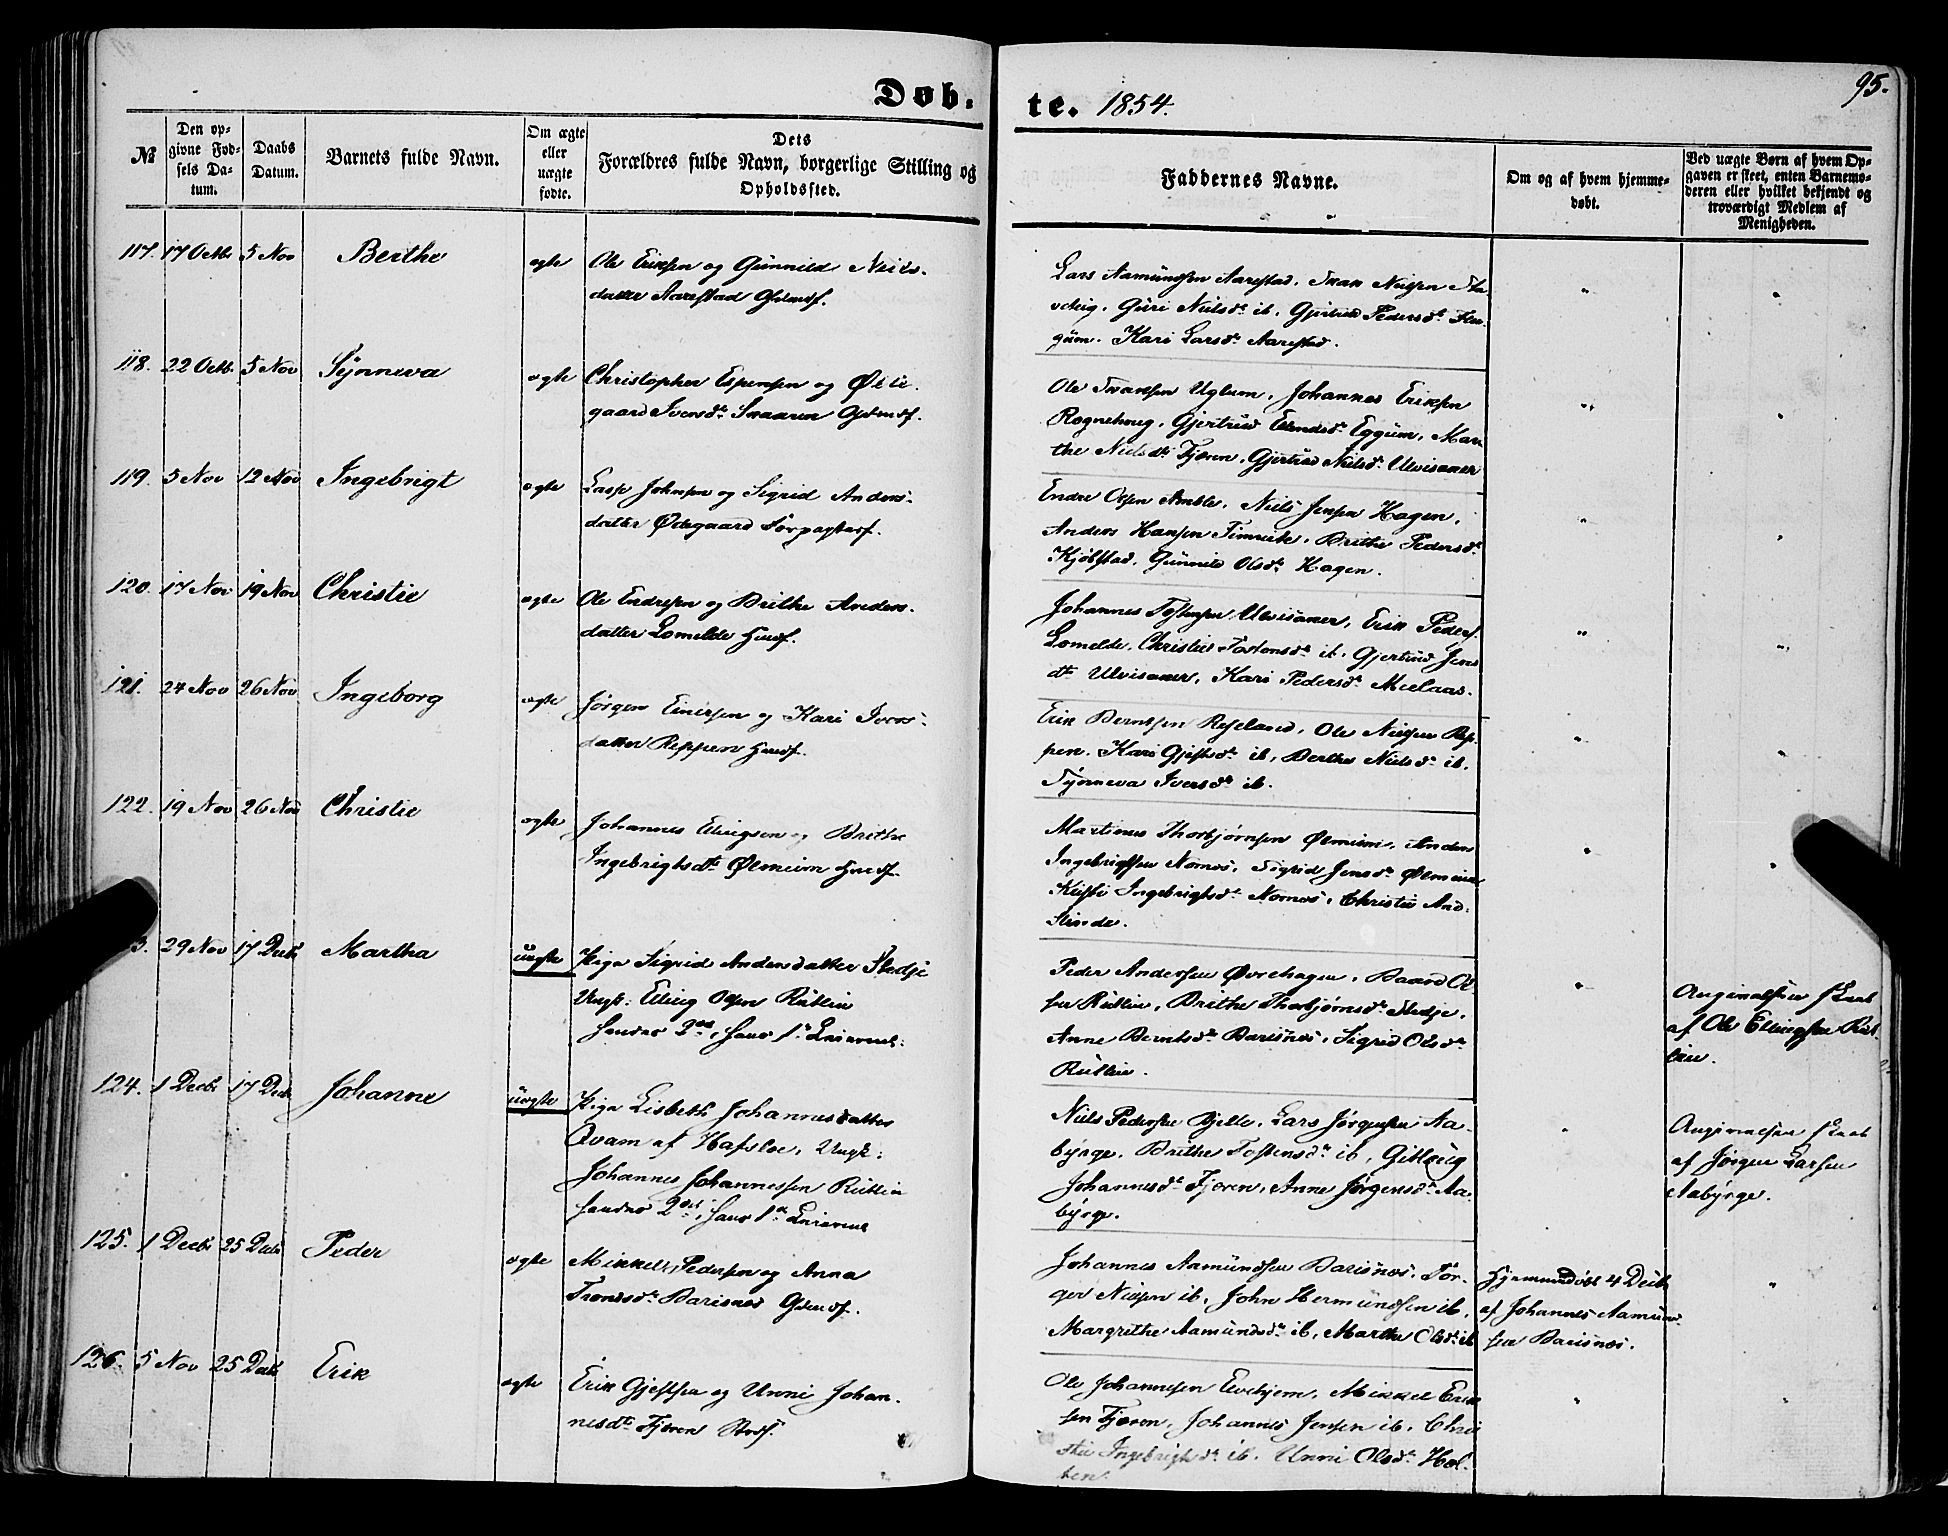 Døb-
te. 1854.
95.
№
Den op-
givne Fød-
sels Da-
tum.
Daabs
Datum.
Barnets fulde Navn.
Om ægte
eller
uægte
fødte.
Dets
Forældres fulde Navn, borgerlige Stilling og
Opholdssted.
Faddernes Navne.
Om og af hvem hjemme-
døbt.
Ved uægte Børn af hvem Op-
gaven er skeet, enten Barnemo-
deren eller hvilket bekjendt og
troværdigt Medlem af
Menigheden.
117. 17 Octbr 5 Nov Berthe ægte
Ole Eriksen og Gunnild Niels-
datter Aarestad Gbmdf.
Lars Aamundsen Aarestad, Nielsen
Guri Nielsdr ib, Gjertrud Pedersdr
Kari Larsdr Aarestad.
118. 22 Octb. 5 Nov Synneva ægte
Christopher Espensen og Ølle-
gaard Iversdr Snaaren Gbmdf.
Ole Uglum, Johannes Eriksen
Rognehoug, Gjertrud Erlendsdr Eggum, Mar-
the Nielsdr Fjæren, Gjertrud Nielsdr Ulvisaker
119. 5 Nov 12 Nov Ingebrigt ægte
Lasse Johnsen og Sigrid Anders-
datter Ødegaard
Endre Olsen Amble, Niels Jensen Hagen,
Anders Hansen Brithe Pedersdr
Kjølstad, Gunnild Olsdr Hagen.
120. 17 Nov 19 Nov Christie ægte
Ole Endresen og Brithe Anders-
datter Lomelde Husf.
Johannes Tostensen Ulvisaker, Erik Peders.
Lomelde, Christie Tostensdr ib, Gjertrud Jens
dr Ulvisaker, Kari Pedersdr
121. 24 Nov 26 Nov Ingeborg ægte
Jørgen Einersen og Kari Ivers-
datter Reppen Husf.
Erik Berntsen Ole Nielsen Rep-
pen, Kari Gjestsdr ib, Berthe Nielsdr ib,
Synneva Iversdr ib.
122. 19 Nov 26 Nov Christie ægte
Johannes Ellingsen og Brithe
Ingebrigtsdtr Ølmeim Husf.
Martinus Thorbjørnsen Ølmeim, Anders
Ingebrigtsen Nornes, Sigrid Jensdr Ølmeim
Ingebrigtsdr Nornes, Christie And-
Slinde.
3. 29 Nov 17 Decbr Martha uægte
Pige Sigrid Andersdatter Stedje
Ungk: Elling Olsen Rutlin
hendes 2det, hans 1ste Leiermaal:
Peder Andersen Øvrehagen, Baard Ol-
sen Rutlin, Brithe Thorbjørnsdr Stedje,
Anne Berntsdr Barsnes, Sigrid Olsdr
Rutlin.
Angivelsen skeet
af Ole Ellingsen Rut-
lin.
124. 1 Decbr 17 Decbr Johanne uægte
Pige Lisbeth Johannesdatter
Qvam af Hafslo, Ungk:
Johannes Johannessen Rutlin
hendes 2det, hans 1ste Leiermaal
Niels Pedersen Bjelle, Lars Jørgensen Aa-
byrge, Brithe Tostensdr ib, Gitlaug
Johannesdr Fjæren, Anne Jørgensdr Aa-
byrge.
Angivelsen skeet
af Jørgen Larsen
Aabyrge.
125. 1 Decbr 25 Decbr Peder ægte
Mikkel Pedersen og Anna
Trondsdr Barsnes Gbmdf.
Johannes Aamundsen Barsnes, Tor-
ger Nielsen ib, John Hermundsen ib,
Margrethe Aamundsdr ib, Marthe Olsdr ib
Hjemmedøbt 4 Decbr
af Johannes Aamund-
sen Barsnes.
126. 5 Nov 25 Decbr Erik ægte
Erik Gjestsen og Unni Johan-
nesdtr Fjæren Strsf.
Ole Johannesen Mikkel Erik-
sen Fjæren, Johannes Jensen ib, Chri-
stie Ingebrigtsdr ib, Unni Olsdr Hol-
ten.